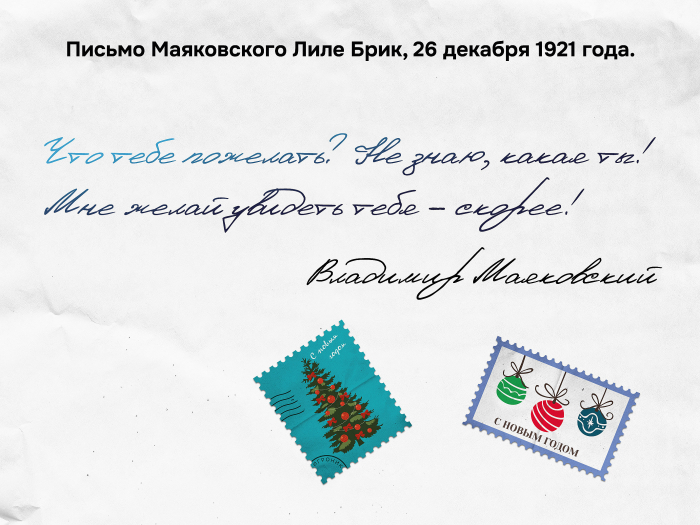 Письмо Маяковского Лиле Брик, 26 декабря 1921 года.
Что тебе пожелать? Не знаю, какая ты!
Мне желай увидеть тебя – скорее!
Владимир Маяковский
С новым
годом
С НОВЫМ ГОДОМ